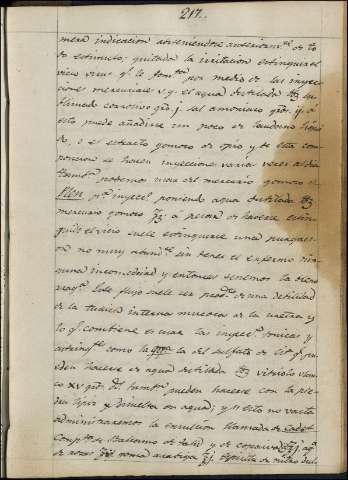 217.
mera indicacion absteniendose anteriorm.te de to
do estimulo; quitada la irritacion estinguir el
vicio por medio de las inyec
ciones mercuriales v.g. el agua destilada su
blimado corrosivo gr. j. sal amoniaco
esto puede añadirse un poco de laudano liqui
do, o el estracto gomoso de opio, y de esta com
posicion se hacen inyecciones varias veces al dia
tamb.n podemos usar del mercurio gomoso de
Plen p.a inyec.s poniendo agua destilada
mercurio gomoso a pesar de haverse estin
guido el vicio suele estinguirse una purgacion
no muy abund.te sin tener el enfermo nin
guna incomodidad y entonces tenemos la bleno
rragia. Este flujo suele ser de una debilidad
de la tunica interna mucosa de la uretra y
lo q.e combiene es usar las inyec.s tonicas y
astring.tes como la del sulfato de q.e pue
den hacerse de agua destilada vitriolo blan
co XV gr. tamb.n pueden hacerse con la pie
dra lipis disuelta en agua, y si esto no basta
administraremos la emulsion llamada de Cadet
Comp.ta de Balsamo de tolu y de copaiva
de rosas goma arabiga